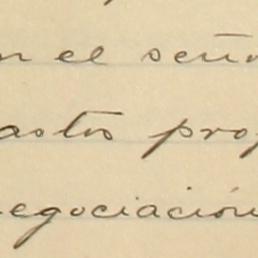 n el seño
astos pro
negociación